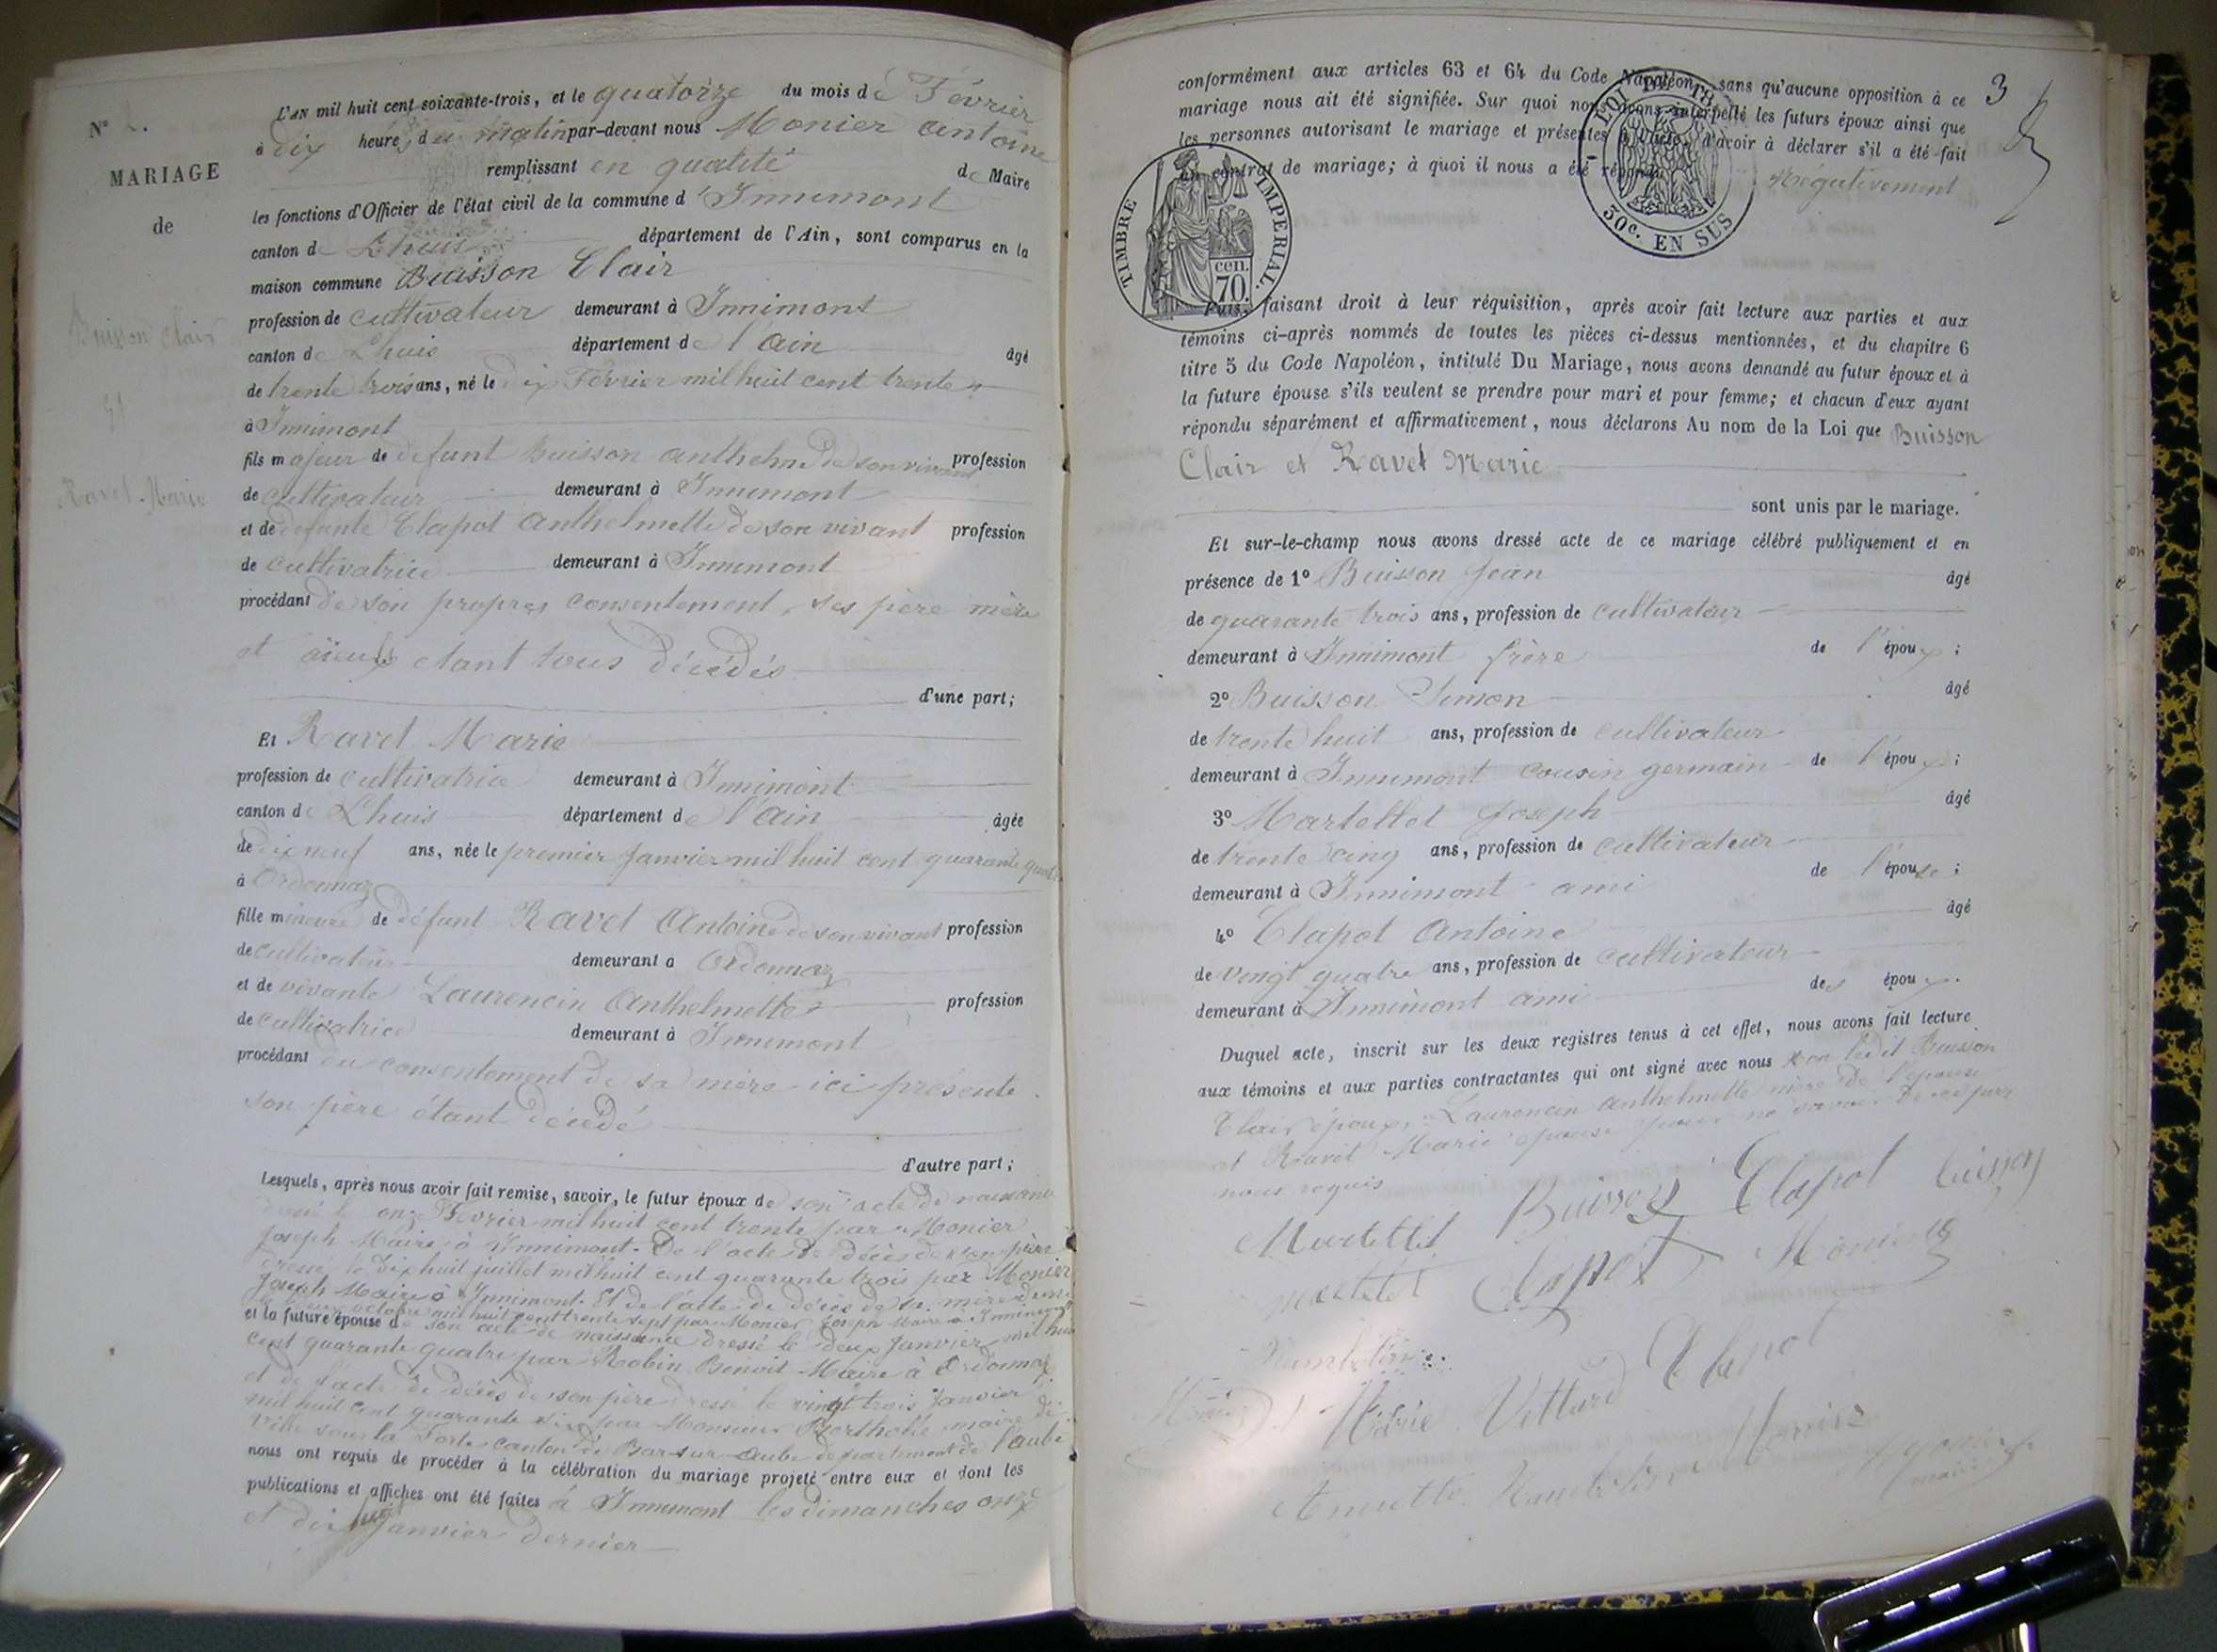 N° 2.
MARIAGE
de
Buisson Clair
Et
Ravet Marie
L'AN mil huit cent soixante-trois, et le quatorze du mois de Février
à dix heures du matin par-devant nous Monier Antoine
remplissant en qualité de Maire
les fonctions d'Officier de l'état civil de la commune d'Innimont
canton de Lhuis département de l'Ain, sont comparus en la
maison commune Buisson Clair
profession de cultivateur demeurant à Innimont
canton de Lhuis département de l'Ain âgé
de trente trois ans, né le dix Février mil huit cent trente
à Innimont
fils majeur de défunt Buisson Anthelme de son vivant profession
de cultivateur demeurant à Innimont
et de défunte Clapot Anthelmette de son vivant profession
de cultivatrice demeurant à Innimont
procédant de son propres consentement, ses père mère
et aïeuls étant tous décédés
d'une part;
Et Ravet Marie
profession de cultivatrice demeurant à Innimont
canton de Lhuis département de l'Ain âgée
de dix neuf ans, née le premier Janvier mil huit cent quarante quatre
à Ordonnaz
fille mineure de défunt Ravet Antoine de son vivant profession
de cultivateur demeurant à Ordonnaz
et de vivante Laurencin Anthelmette profession
de cultivatrice demeurant à Innimont
procédant du consentement de sa mère ici présente
son père étant décédé
d'autre part;
Lesquels, après nous avoir fait remise, savoir, le futur époux de son acte de naissance
dressé le onze Février mil huit cent trente par Monier
Joseph Maire à Innimont. De l'acte de décès de son père
dressé le dix huit juillet mil huit cent quarante trois par Monier
Joseph Maire à Innimont. Et de l'acte de décès de sa mère dressé
octobre mil huit cent trente sept par Monier Joseph Maire à Innimont
et la future épouse de son acte de naissance dressé le deux Janvier mil huit
cent quarante quatre par Robin Benoit Maire à Ordonnaz
et de l'acte de décès de son père dressé le vingt trois Janvier
mil huit cent quarante six par Monsieur Berthollé maire de
Ville sous la Ferté canton de Bar-sur-Aube département de l'aube
nous ont requis de procéder à la célébration du mariage projeté entre eux et dont les
publications et affiches ont été faites à Innimont les dimanches onze
et dix huit Janvier dernier
3
conformément aux articles 63 et 64 du Code Napoléon, sans qu'aucune opposition à ce
mariage nous ait été signifiée. Sur quoi nous avons interpellé les futurs époux ainsi que
les personnes autorisant le mariage et présentes à l'acte, d'avoir à déclarer s'il a été fait
un contrat de mariage; à quoi il nous a été répondu Négativement
TIMBRE IMPERIAL.
cen. 70.
LOI DE
30c. EN SUS
Puis, faisant droit à leur réquisition, après avoir fait lecture aux parties et aux
témoins ci-après nommés de toutes les pièces ci-dessus mentionnées, et du chapitre 6
titre 5 du Code Napoléon, intitulé Du Mariage, nous avons demandé au futur époux et à
la future épouse s'ils veulent se prendre pour mari et pour femme; et chacun d'eux ayant
répondu séparément et affirmativement, nous déclarons Au nom de la Loi que Buisson
Clair et Ravet Marie
sont unis par le mariage.
Et sur-le-champ nous avons dressé acte de ce mariage célébré publiquement et en
présence de 1° Buisson Jean âgé
de quarante trois ans, profession de cultivateur
demeurant à Innimont frère de l'époux;
2° Buisson Simon âgé
de trente huit ans, profession de cultivateur
demeurant à Innimont cousin germain de l'époux;
3° Martellet Joseph âgé
de trente cinq ans, profession de cultivateur
demeurant à Innimont ami de l'épouse;
4° Clapot Antoine âgé
de vingt quatre ans, profession de cultivateur
demeurant à Innimont ami des époux.
Duquel acte, inscrit sur les deux registres tenus à cet effet, nous avons fait lecture
aux témoins et aux parties contractantes qui ont signé avec nous non ledit Buisson
Clair époux, Laurencin Anthelmette mère de l'épouse
et Ravet Marie épouse pour ne savoir de ce par
nous requis
Martellet Buisson Clapot Buisson
martelet Clapot Monier
Humbert
Monier Marie Vettard Clapot
Annette Monier
Monier
maire